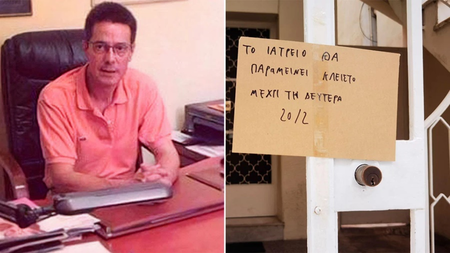 ΤΟ ΙΑΤΡΕΙΟ ΘΑ
ΠΑΡΑΜΕΙΝΕΙ ΚΛΕΙΣΤΟ
ΜΕΧΠΙ ΤΗ ΔΕΥΤΕΡΑ
20/2